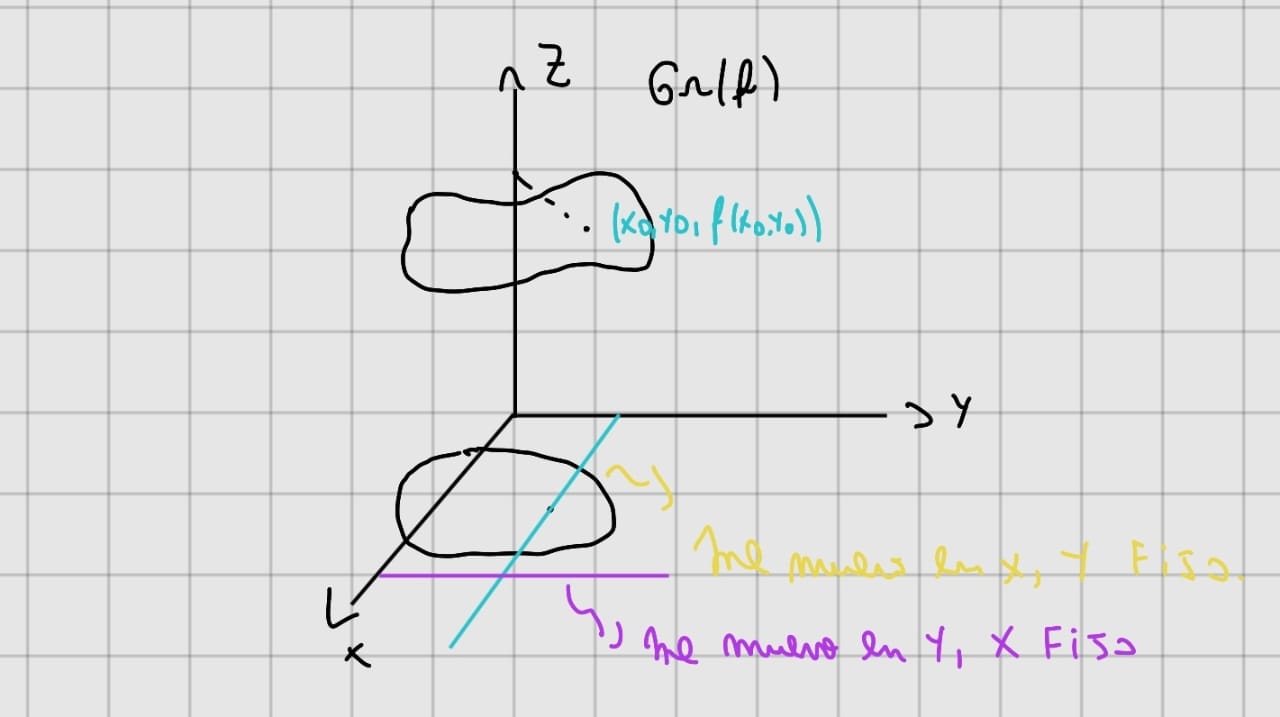 Z
Gr(f)
(x0, y0, f(x0, y0))
Y
me muevo en x, Y Fijo.
me muevo en Y, X Fijo
X